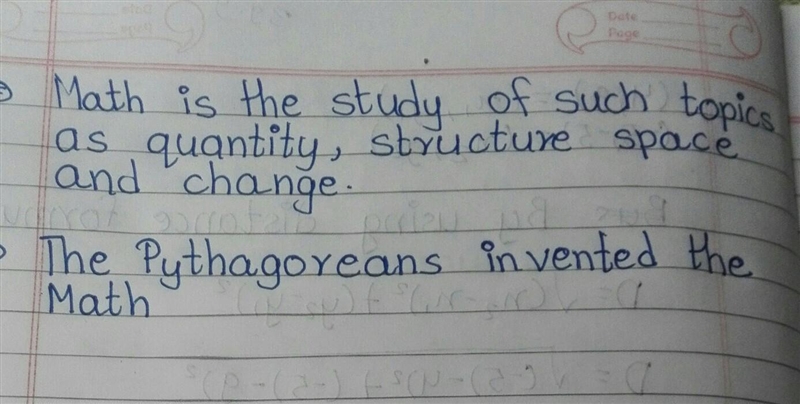 Date
Page
Math is the study of such topics
as quantity, structure space
and change.
The Pythagoreans invented the
Math